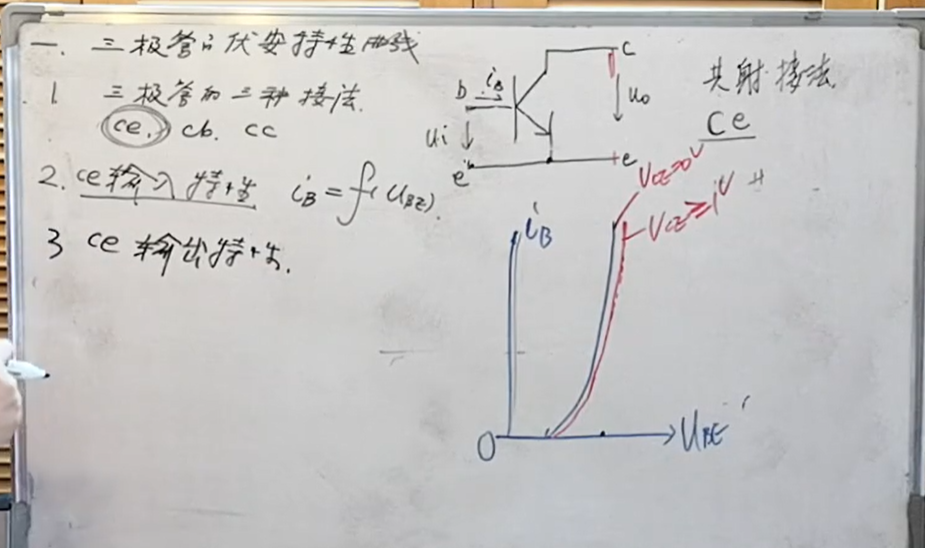 一. 三极管的伏安特性曲线
1 三极管的三种接法.
ce. cb. cc
2. ce输入特性 iB = f(UBE)
3 ce 输出特性.
共射接法
ce
b iB c
ui uo
e e
VCE=0V
VCE≥1V
iB
O UBE